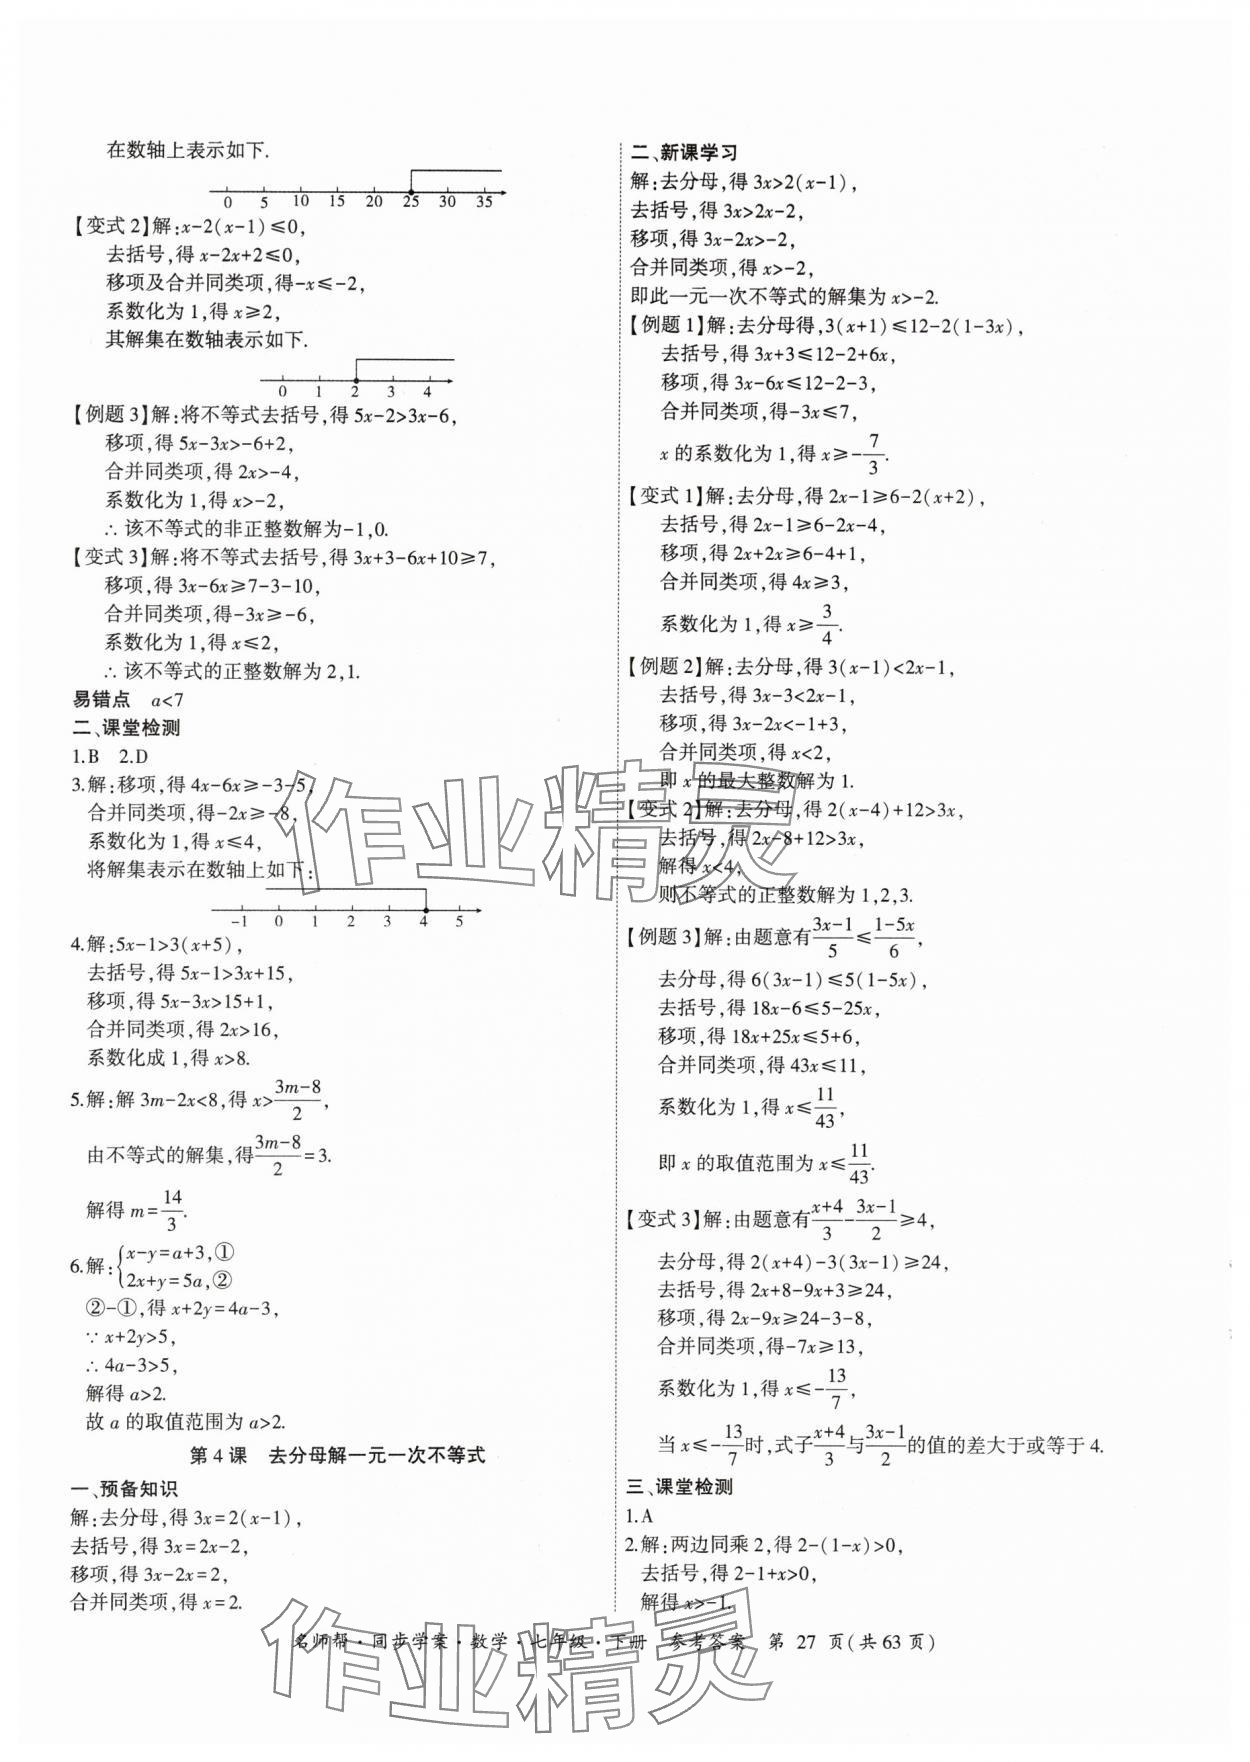 在数轴上表示如下.
0 5 10 15 20 25 30 35
【变式 2】解:x-2(x-1)≤0,
去括号,得 x-2x+2≤0,
移项及合并同类项,得-x≤-2,
系数化为 1,得 x≥2,
其解集在数轴表示如下.
0 1 2 3 4
【例题 3】解:将不等式去括号,得 5x-2>3x-6,
移项,得 5x-3x>-6+2,
合并同类项,得 2x>-4,
系数化为 1,得 x>-2,
∴ 该不等式的非正整数解为-1,0.
【变式 3】解:将不等式去括号,得 3x+3-6x+10≥7,
移项,得 3x-6x≥7-3-10,
合并同类项,得-3x≥-6,
系数化为 1,得 x≤2,
∴ 该不等式的正整数解为 2,1.
易错点 a<7
二、课堂检测
1.B 2.D
3.解:移项,得 4x-6x≥-3-5,
合并同类项,得-2x≥-8,
系数化为 1,得 x≤4,
将解集表示在数轴上如下:
-1 0 1 2 3 4 5
4.解:5x-1>3(x+5),
去括号,得 5x-1>3x+15,
移项,得 5x-3x>15+1,
合并同类项,得 2x>16,
系数化成 1,得 x>8.
5.解:解 3m-2x<8,得 x>(3m-8)/2,
由不等式的解集,得(3m-8)/2=3.
解得 m=14/3.
6.解:{x-y=a+3,①
2x+y=5a,②
②-①,得 x+2y=4a-3,
∵ x+2y>5,
∴ 4a-3>5,
解得 a>2.
故 a 的取值范围为 a>2.
第 4 课 去分母解一元一次不等式
一、预备知识
解:去分母,得 3x=2(x-1),
去括号,得 3x=2x-2,
移项,得 3x-2x=2,
合并同类项,得 x=2.
二、新课学习
解:去分母,得 3x>2(x-1),
去括号,得 3x>2x-2,
移项,得 3x-2x>-2,
合并同类项,得 x>-2,
即此一元一次不等式的解集为 x>-2.
【例题 1】解:去分母得,3(x+1)≤12-2(1-3x),
去括号,得 3x+3≤12-2+6x,
移项,得 3x-6x≤12-2-3,
合并同类项,得-3x≤7,
x 的系数化为 1,得 x≥-7/3.
【变式 1】解:去分母,得 2x-1≥6-2(x+2),
去括号,得 2x-1≥6-2x-4,
移项,得 2x+2x≥6-4+1,
合并同类项,得 4x≥3,
系数化为 1,得 x≥3/4.
【例题 2】解:去分母,得 3(x-1)<2x-1,
去括号,得 3x-3<2x-1,
移项,得 3x-2x<-1+3,
合并同类项,得 x<2,
即 x 的最大整数解为 1.
【变式 2】解:去分母,得 2(x-4)+12>3x,
去括号,得 2x-8+12>3x,
解得 x<4,
则不等式的正整数解为 1,2,3.
【例题 3】解:由题意有(3x-1)/5≤(1-5x)/6,
去分母,得 6(3x-1)≤5(1-5x),
去括号,得 18x-6≤5-25x,
移项,得 18x+25x≤5+6,
合并同类项,得 43x≤11,
系数化为 1,得 x≤11/43,
即 x 的取值范围为 x≤11/43.
【变式 3】解:由题意有(x+4)/3-(3x-1)/2≥4,
去分母,得 2(x+4)-3(3x-1)≥24,
去括号,得 2x+8-9x+3≥24,
移项,得 2x-9x≥24-3-8,
合并同类项,得-7x≥13,
系数化为 1,得 x≤-13/7,
当 x≤-13/7时,式子(x+4)/3与(3x-1)/2的值的差大于或等于 4.
三、课堂检测
1.A
2.解:两边同乘 2,得 2-(1-x)>0,
去括号,得 2-1+x>0,
解得 x>-1.
名师帮·同步学案·数学·七年级·下册 参考答案 第 27 页(共 63 页)
作业精灵
作业精灵